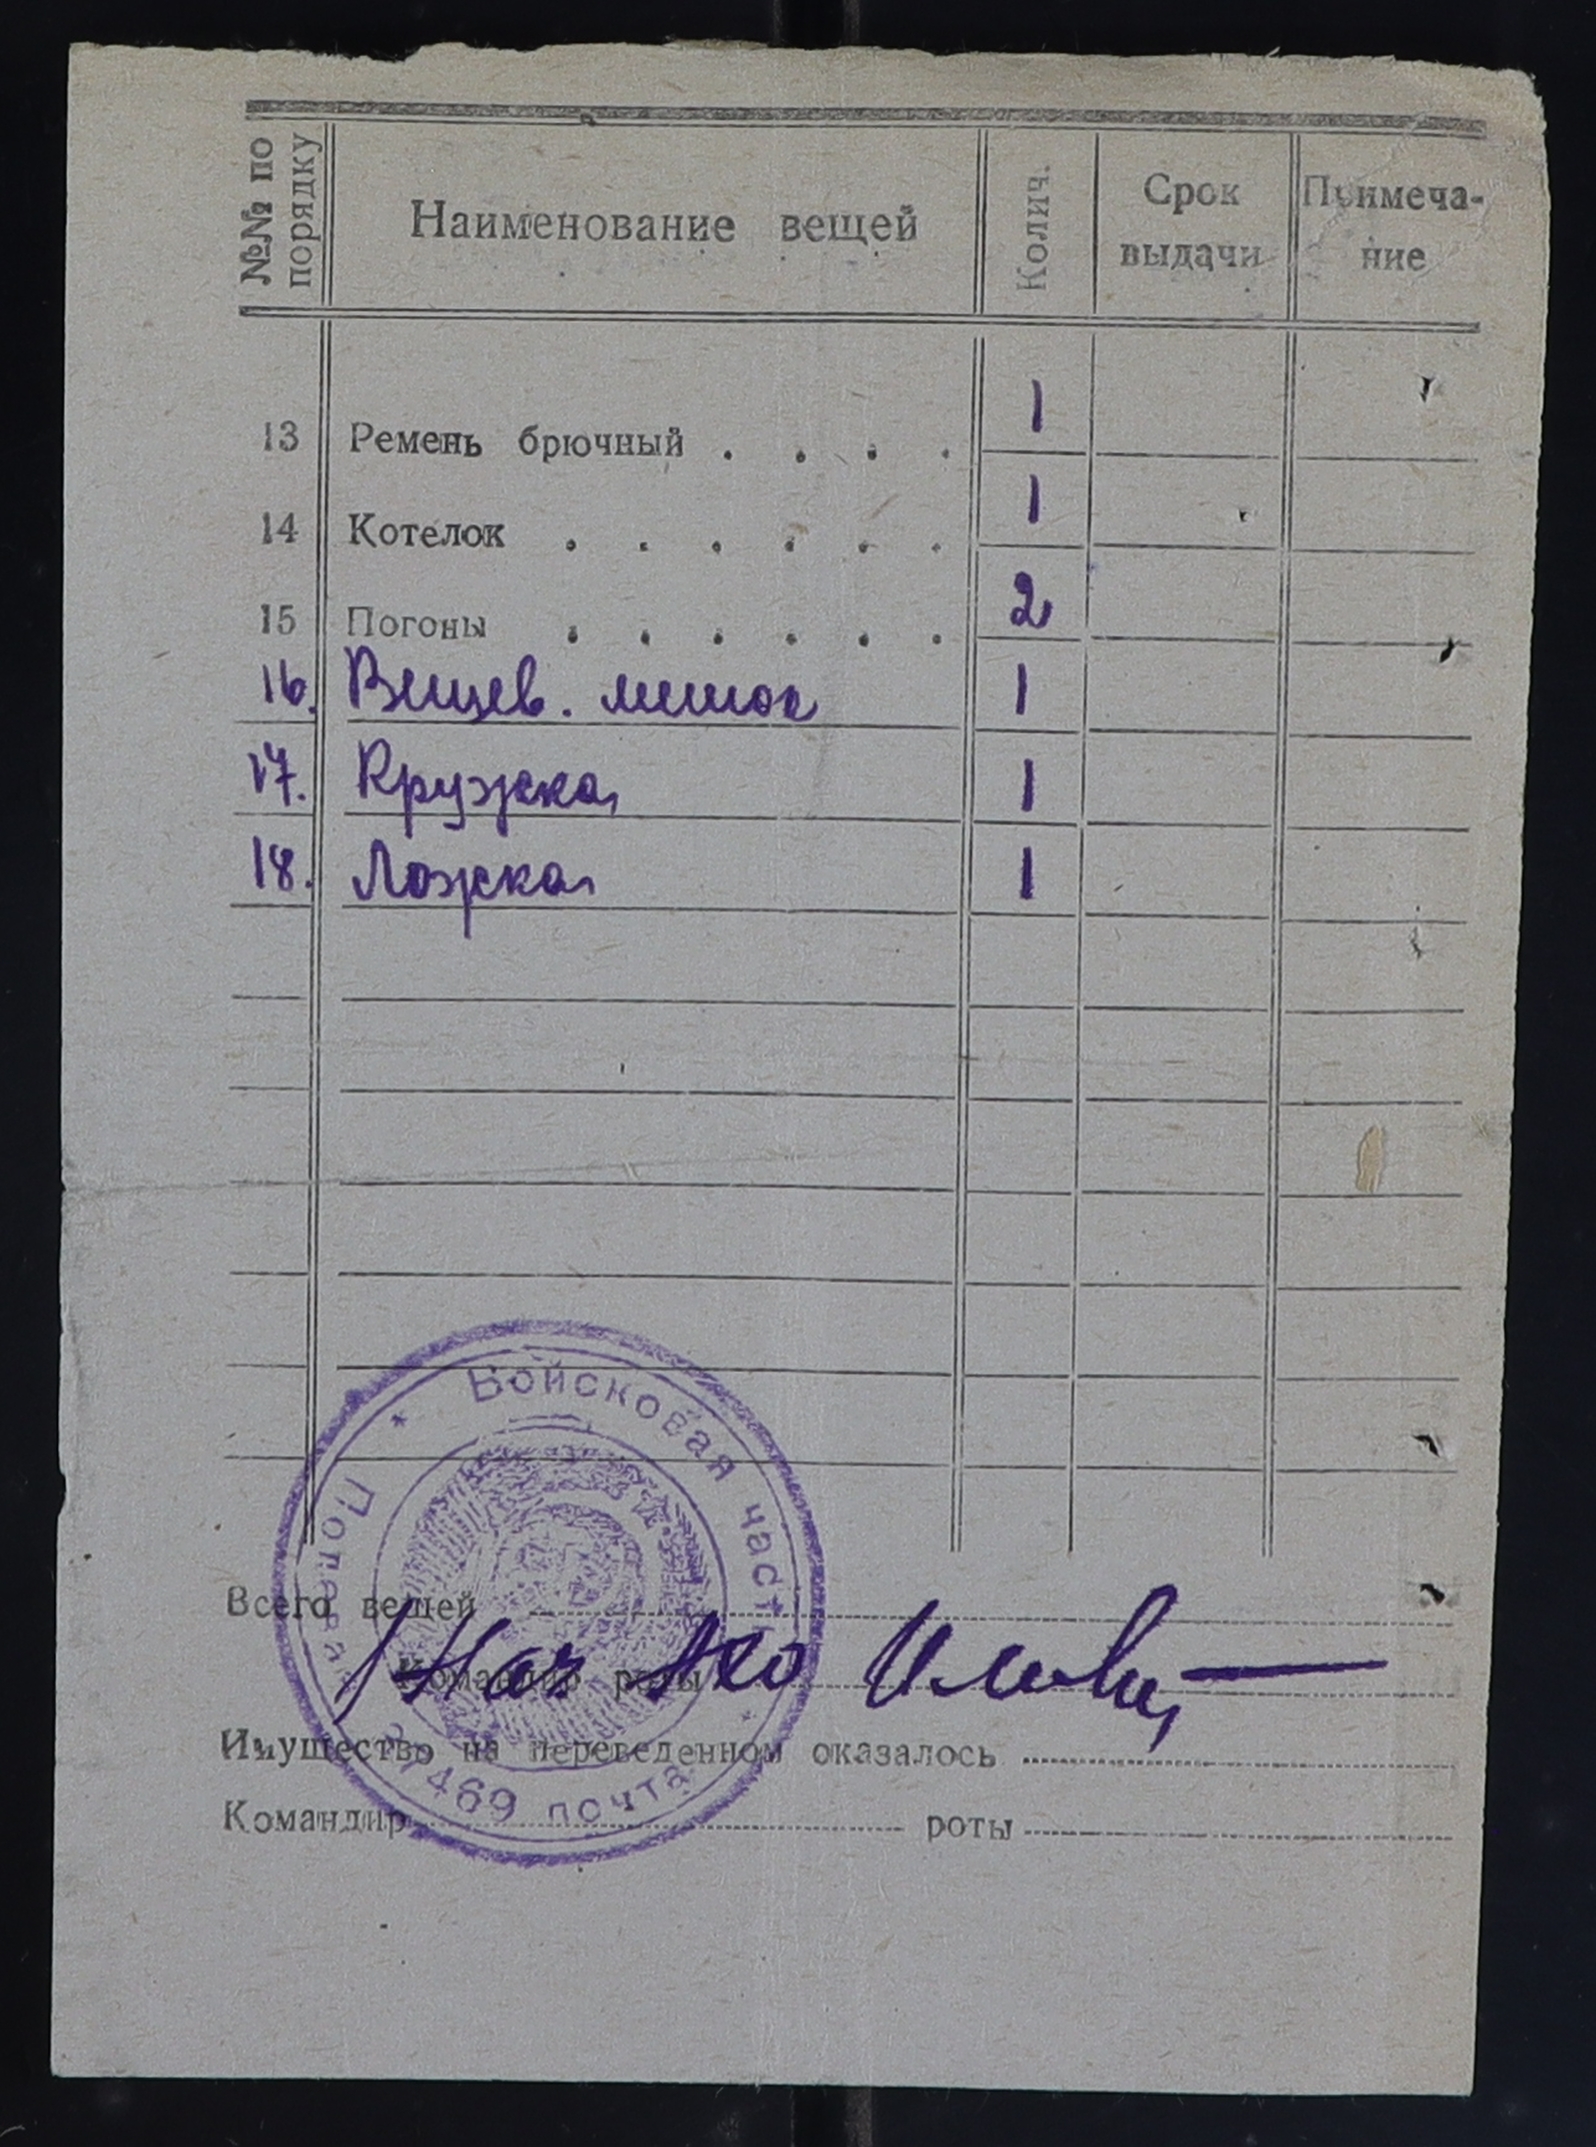 №№ по порядку Наименование вещей Колич. Срок выдачи Примеча-ние
13 Ремень брючный . . . . 1
14 Котелок . . . . . . 1
15 Погоны . . . . . . 2
16. Вещев. мешок 1
17. Кружка 1
18. Ложка 1
Войсковая часть
Полевая
почта
469
Всего вещей
Командир роты
Нач АХО
Имущество на переведенном оказалось
Командир роты